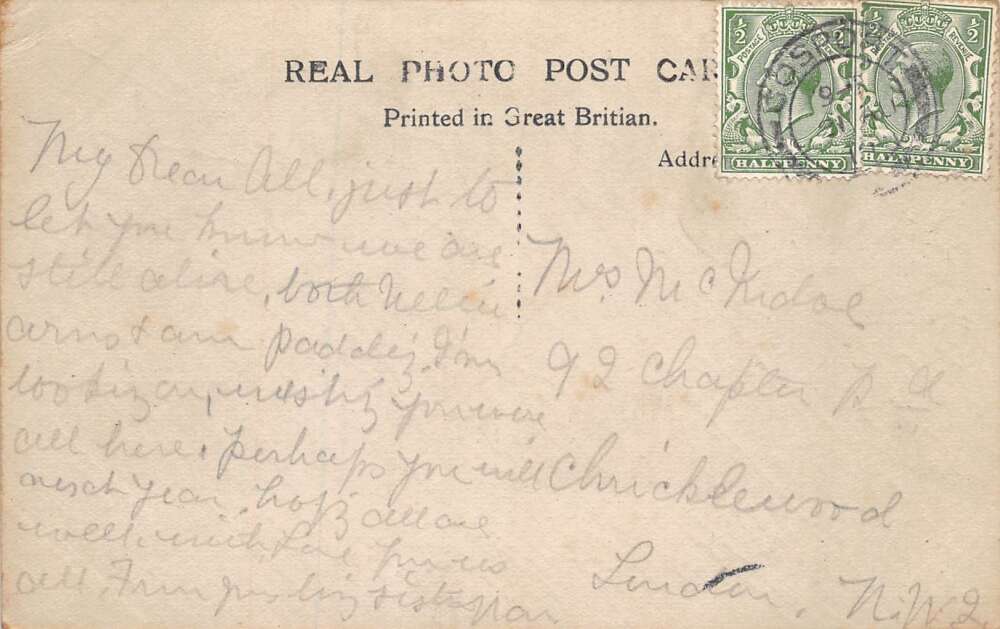 REAL PHOTO POST CAR
Printed in Great Britian.
Addre
½ ½
POSTAGE REVENUE
HALFPENNY
½ ½
POSTAGE REVENUE
HALFPENNY
GOSPORT
My Dear All, just to
let you know we are
still alive, both Nellie
and am paddlig. I'm
lookig on, wishig you were
all here. Perhaps you will
next year, hopig all are
well, with Love yours
all, From your lovig sister Nan
Mrs. Mc
92 Chaplin Rd
Chricklewood
London, N.W.2.